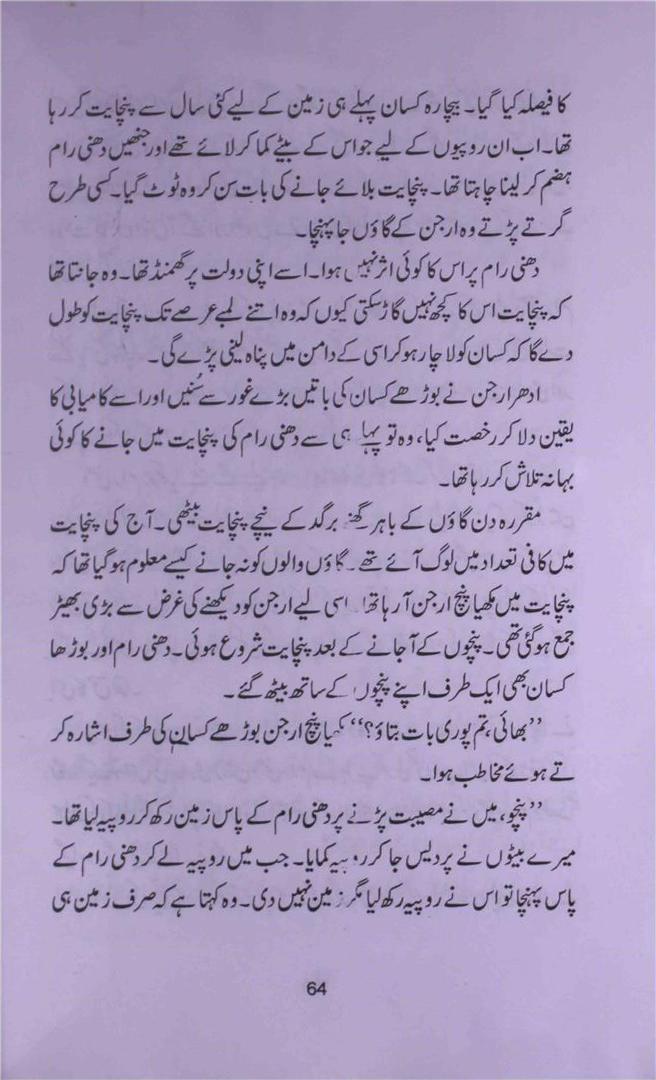 کا فیصلہ کیا گیا۔ بیچارہ کسان پہلے ہی زمین کے لیے کئی سال سے پنچایت کر رہا
تھا۔ اب ان روپیوں کے لیے جو اس کے بیٹے کما کر لائے تھے اور جنھیں دھنی رام
ہضم کر لینا چاہتا تھا۔ پنچایت بلائے جانے کی بات سن کر وہ ٹوٹ گیا۔ کسی طرح
گرتے پڑتے وہ ارجن کے گاؤں جا پہنچا۔
دھنی رام پر اس کا کوئی اثر نہیں ہوا۔ اسے اپنی دولت پر گھمنڈ تھا۔ وہ جانتا تھا
کہ پنچایت اس کا کچھ نہیں گاڑ سکتی کیوں کہ وہ اتنے لمبے عرصے تک پنچایت کو طول
دے گا کہ کسان کو لاچار ہو کر اسی کے دامن میں پناہ لینی پڑے گی۔
ادھر ارجن نے بوڑھے کسان کی باتیں بڑے غور سے سُنیں اور اسے کامیابی کا
یقین دلا کر رخصت کیا، وہ تو پہلے ہی سے دھنی رام کی پنچایت میں جانے کا کوئی
بہانہ تلاش کر رہا تھا۔
مقررہ دن گاؤں کے باہر گھنے برگد کے نیچے پنچایت بیٹھی۔ آج کی پنچایت
میں کافی تعداد میں لوگ آئے تھے۔ گاؤں والوں کو نہ جانے کیسے معلوم ہو گیا تھا کہ
پنچایت میں مکھیا پنچ ارجن آ رہا تھا۔ اسی لیے ارجن کو دیکھنے کی غرض سے بڑی بھیڑ
جمع ہو گئی تھی۔ پنچوں کے آ جانے کے بعد پنچایت شروع ہوئی۔ دھنی رام اور بوڑھا
کسان بھی ایک طرف اپنے پنچوں کے ساتھ بیٹھ گئے۔
”بھائی، تم پوری بات بتاؤ؟“ مکھیا پنچ ارجن بوڑھے کسان کی طرف اشارہ کر
تے ہوئے مخاطب ہوا۔
”پنچو، میں نے مصیبت پڑنے پر دھنی رام کے پاس زمین رکھ کر روپیہ لیا تھا۔
میرے بیٹوں نے پردیس جا کر روپیہ کمایا۔ جب میں روپیہ لے کر دھنی رام کے
پاس پہنچا تو اس نے روپیہ رکھ لیا مگر زمین نہیں دی۔ وہ کہتا ہے کہ صرف زمین ہی
64